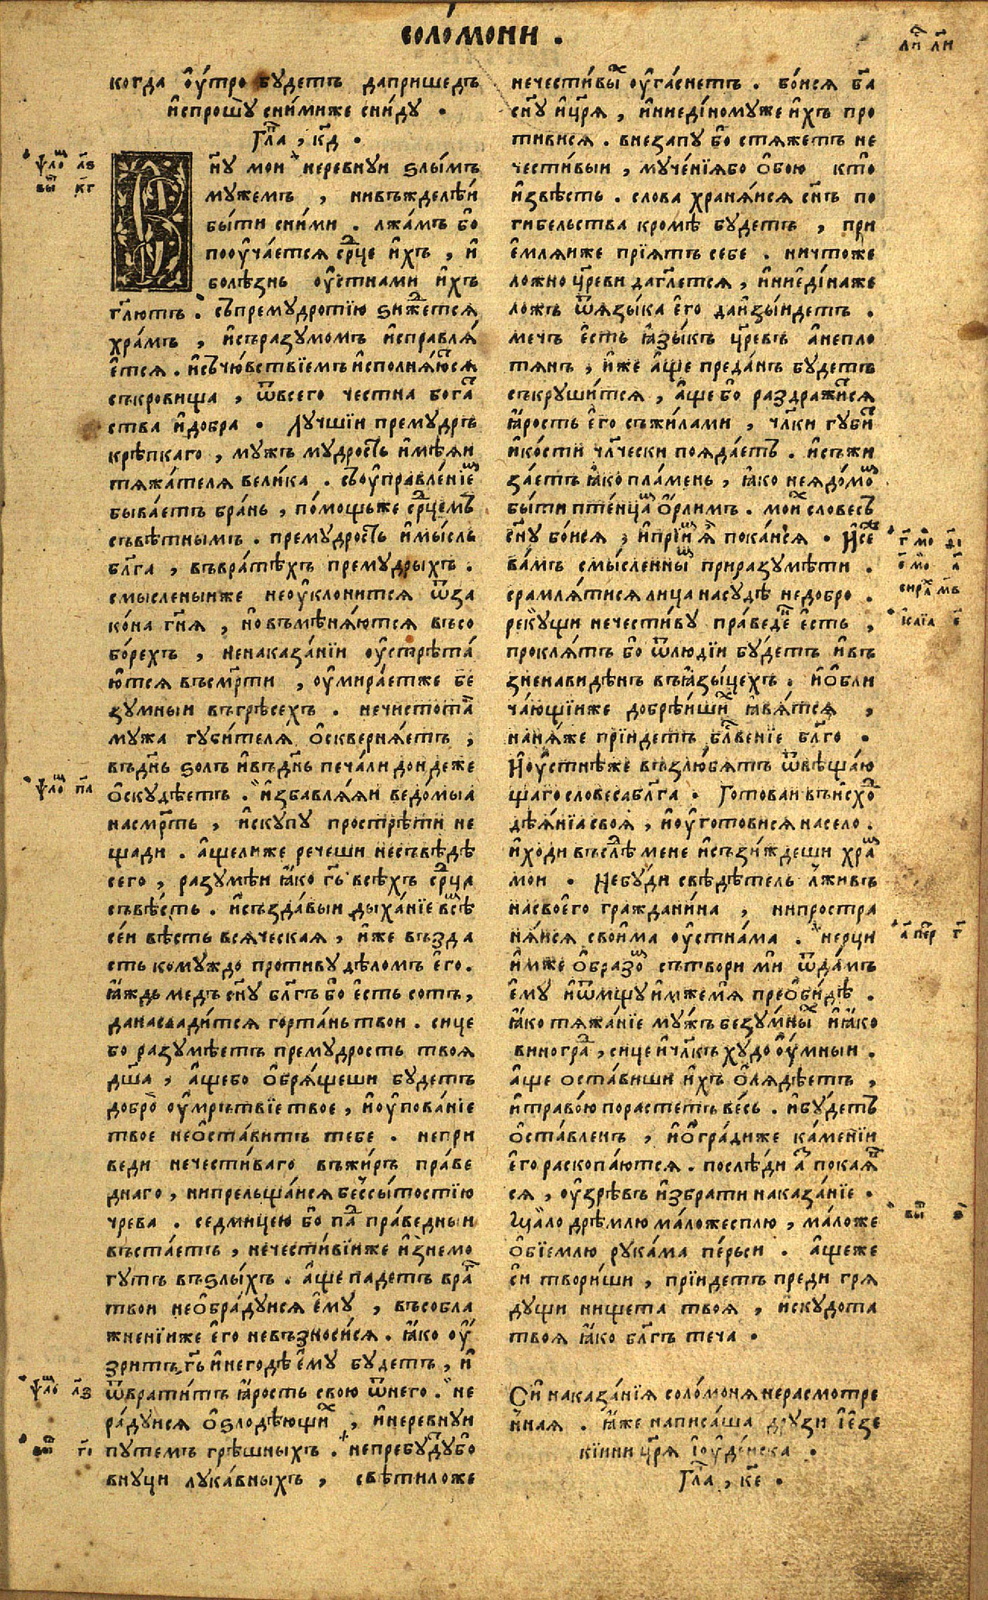 соло́мони .
когда оу҆́тро будетъ дапришедъ
и҆спрошꙋ снимиже сниду .
Гла҃ , к҃д .
Сн҃у мои неревнуи ѕлы́мъ
мужемъ , нивъжделѣ́и
бы́ти сними . лжа́мъ бо
пооуча́ется ср҃це и҆хъ , и҆
болѣзнь оу҆стнами и҆хъ
гл҃ютъ . съпремудростїю ѕи́ждется
хра́мъ , и҆съразумомъ и҆справлѧ́
е҆тся . и҆съчю́вствїемъ и҆сполнѧ́юся
съкровища , ѿвсего честна бога
ства и҆добра . Лучшїи премудръ
крѣпкаго , мужъ мудрость и҆мѣѧи
тѧжа́телѧ вели́ка . съоу҆правле́нїе
быва́етъ бра́нь , по́мощьже ср҃цемъ
съвѣтнымъ . премудрость и҆мы́сль
бл҃га , въвра́тѣхъ премудрыхъ .
смысленыиже неоу҆клонится ѿза
ко́на гн҃я , новъмѣнѧ́ются въсо
бо́рехъ , ненаказа́нїи оу҆стрѣта́
ю҆тся въсмр҃ти , оу҆мира́етже бе
зумныи въгрѣсехъ . нечистота
мужа губи́телѧ о҆сквернѧ́етъ ,
въдн҃ь ѕолъ и҆въдн҃ь печа́ли дон деже
о҆скудѣетъ . и҆збавлѧ́ѧи ведо́мыа
насмр҃ть , и҆скупу прострѣ́ти не
щади . а҆щелиже речеши несъвѣдѣ
сего , разумѣи ꙗ҆ко гь҃ всѣхъ ср҃ца
съвѣ́сть . и҆създа́выи дыха́нїе всѣ
се́и вѣсть всѧческая , и҆же възда
сть комуждо противу дѣломъ е҆го .
ꙗ҆ждь медъ сн҃у бл҃гъ бо е҆сть сотъ ,
данасладится горта́нь твои . сице
бо разумѣетъ премудрость твоѧ
дш҃а , а҆щебо о҆брѧ́щеши будетъ
добро оу҆мрьтвїе твое , и҆оу҆пова́нїе
твое нео҆ставитъ тебе . непри
веди нечести́ваго въжи́ръ пра́ве
днаго , нипрельща́исѧ бессы́тостїю
чрева . седмицею бо па пра́ведныи
въста́етъ , нечести́вїиже и҆знемо
гутъ въѕлы́хъ . а҆ще падетъ вра
твои нео҆бра́дуисѧ е҆му , въсобла
жненїиже е҆го невъзноси́сѧ . ꙗ҆ко оу҆
зритъ гь҃ и҆негодѣ е҆му будетъ , и҆
ѿврати́тъ ꙗ҆рость свою ѿнего . не
ра́дуисѧ о҆ѕлодѣющи , и҆неревнуи
путемъ грѣшныхъ . непребудубо
внуци лука́вныхъ , свѣтиложе
нечести́вы оу҆га́снетъ . бо́исѧ ба҃
сн҃у и҆цр҃ѧ , и҆ниеди́номуже и҆хъ про
тивисѧ . внезапу бо стѧжетъ не
чести́выи , муче́нїѧбо о҆бою кто
и҆звѣсть . слова хранѧ́исѧ сн҃ъ по
гибельства кромѣ будетъ , при
е҆млѧиже прїѧтъ себе . ничтоже
ложно цр҃еви даглетсѧ , и҆ниеди́наже
ложъ ѿѧзыка е҆го даи҆зы́идетъ .
мечъ е҆сть ꙗ҆зы́къ цр҃евъ а҆непло
тѧнъ , и҆же а҆ще преда́нъ будетъ
съкруши́тсѧ , а҆ще бо раздражи́сѧ
ꙗ҆рость е҆го съжи́лами , чл҃ки губи
и҆ко́сти чл҃чески поѧда́етъ . и҆съжи
за́етъ ꙗ҆ко пла́мень , ꙗ҆ко неѧдо́мо
бы́ти птенца о҆рли́мъ . мои словесъ
сн҃у бо́исѧ , и҆прїи ѧ пока́исѧ . И҆се
ва́мъ смы́сленны приразумѣ́ти .
срамлѧ́тисѧ лица насудѣ недобро .
рекущи нечести́ву пра́веде е҆сть ,
проклѧ́тъ бо ѿлюдїи бу́детъ и҆въ
зненавидѣнъ въꙗзы́цехъ . и҆о҆бли
ча́ющїиже добрѣ́иши ꙗ҆вѧ́тсѧ ,
нанѧ́же прїидетъ бл҃венїе бл҃го .
И҆оу҆стнѣже възлюбѧтъ ѿвѣща́ю
щаго словесабл҃га . Готоваи въи҆схо
дѣѧнїа своѧ , и҆оу҆готовисѧ насело .
и҆ходи въслѣ мене и҆съзи́ждеши хра
мои . Небу́ди свѣдѣтель лживъ
насвоего гражани́на , нипростра
нѧ́исѧ свои́ма оу҆стна́ма . нерци
и҆мже о҆бразо сътвори ми ѿда́мъ
е҆му и҆ѿмщу и҆мжемѧ преоби́дѣ .
ꙗ҆ко тѧжа́нїе му́жъ безу́мны и҆ ꙗ҆ко
виногра , сице и҆чл҃къ ху́до оу҆мныи .
а҆ще оста́виши и҆хъ о҆лѧдѣетъ ,
и҆траво́ю порастетъ ве́сь . и҆бу́детъ
о҆ста́вленъ , и҆о҆гра́диже ка́менїи
е҆го раскопа́ются . послѣди а҆ покаѧ
сѧ , оу҆зрѣвъ и҆збрати наказа́нїе .
Ма́ло дрѣ́млю ма́ложесплю , ма́ложе
о҆бїемлю рука́ма пе́рьси . а҆щеже
си твори́ши , прїидетъ преди грѧ
дущи нищета твоѧ , и҆скудота
твоѧ ꙗ҆ко бл҃гъ теча .
Си҆ наказа́нїѧ соло́монѧ нерасмотре
ннаѧ . ꙗ҆же написа́ша друзи і҆е҆зе
кїини цр҃ѧ і҆оу҆де́иска .
Гла҃ , к҃е .